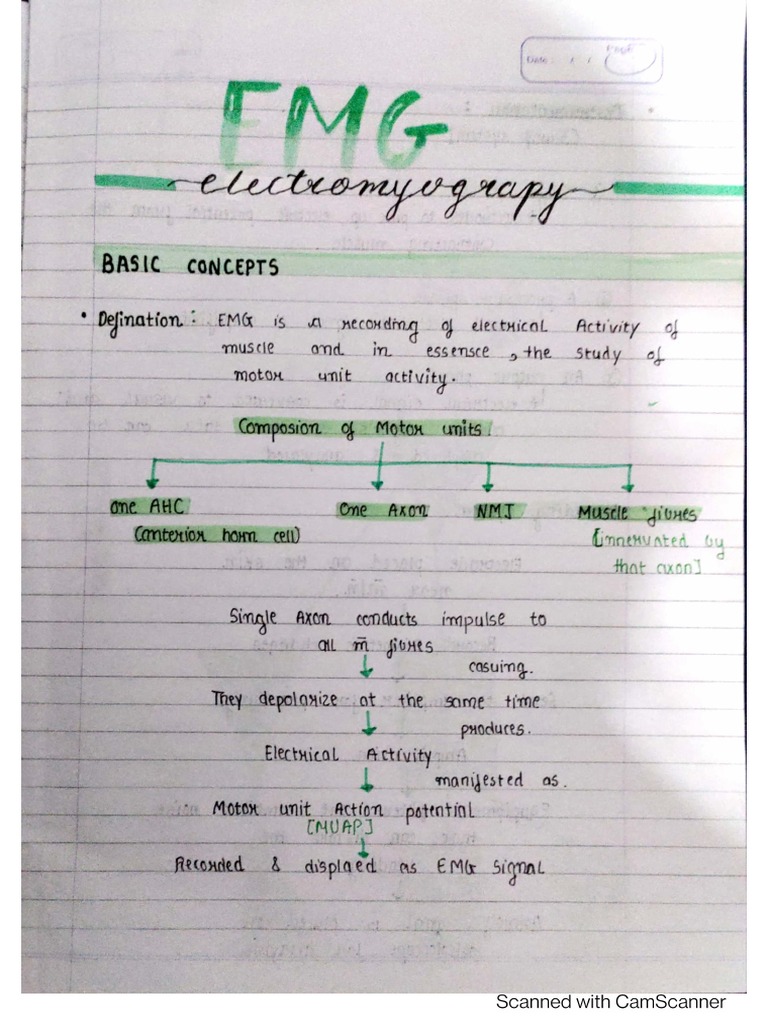 Date: / /
PAGE
EMG
electromyograpy
BASIC CONCEPTS
• Defination: EMG is a recording of electrical Activity of
muscle and in essensce, the study of
motor unit activity.
Composion of Motor units.
one AHC One Axon NMJ Muscle fibres
(anterior horn cell) [innervated by
that axon]
Single Axon conducts impulse to
all m̄ fibres
casuing.
They depolarize at the same time
produces.
Electrical Activity
manifested as.
Motor unit Action potential
[MUAP]
Recorded & displaed as EMG Signal
Scanned with CamScanner